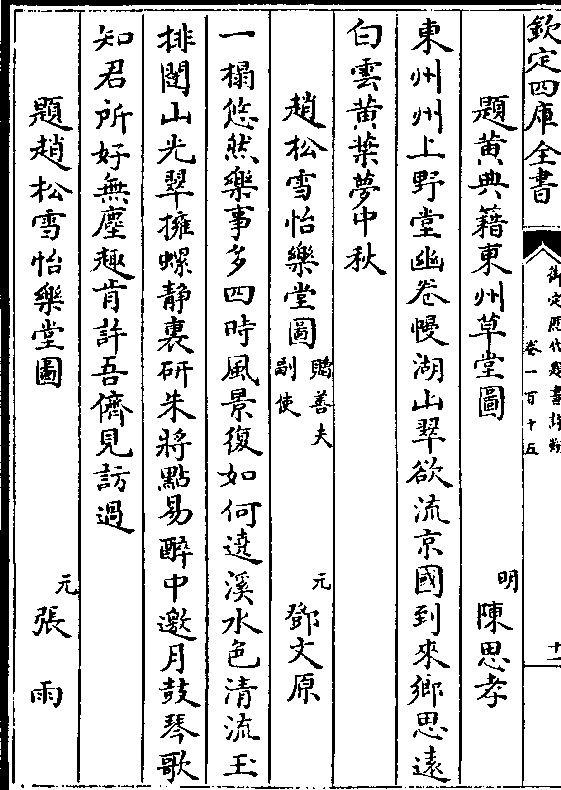 欽定四庫全書
御定歷代題畫詩類 卷一百十五 十一
題黄典籍東州草堂圖 明 陳思孝
東州州上野堂幽卷幔湖山翠欲流京國到來鄉思遠
白雲黄葉夢中秋
趙松雪怡樂堂圖 贈善夫副使 元 鄧文原
一榻悠然樂事多四時風景復如何遶溪水色清流玉
排闥山光翠擁螺静裏研朱將點易醉中邀月鼓琴歌
知君所好無塵趣肯許吾儕見訪過
題趙松雪怡樂堂圖 元 張雨